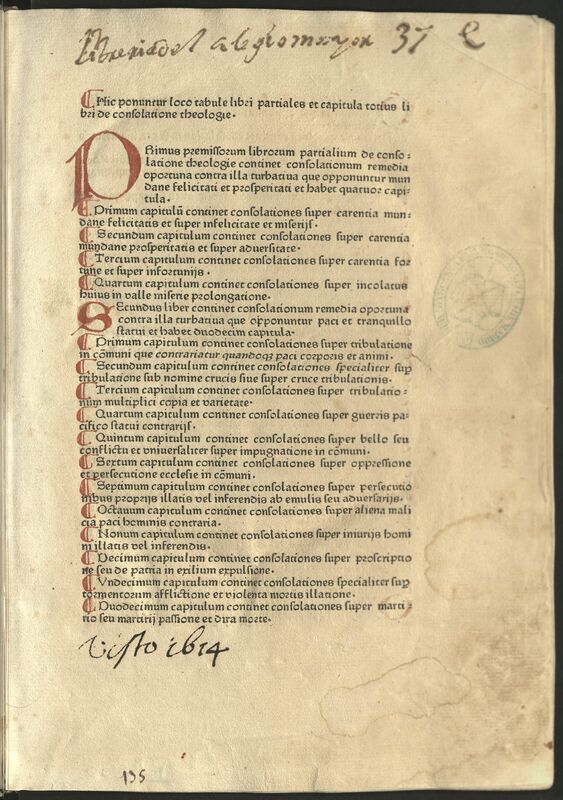 Libreria del colegio mayor 37 e
Hic ponuntur loco tabule libri partiales et capitula totius li
bri de consolatione theologie.
PRimus premissorum librorum partialium de conso⸗
latione theologie continet consolationum remedia
oportuna contra illa turbatiua que opponuntur mun
dane felicitati et prosperitati et habet quatuor capi⸗
tula.
Primum capitulū continet consolationes super carentia mun⸗
dane felicitatis et super infelicitate et miserijs.
Secundum capitulum continet consolationes super carentia
mundane prosperitatis et super aduersitate.
Tertium capitulum continet consolationes super carentia for
tune et super infortunijs.
Quartum capitulum continet consolationes super incolatus
huius in valle miserie prolongatione.
SEcundus liber continet consolationum remedia oportuna
contra illa turbatiua que opponuntur paci et tranquillo
statui et habet duodecim capitula.
Primum capitulum continet consolationes super tribulatione
in cōmuni que contrariatur quandoqꝫ paci corporis et animi.
Secundum capitulum continet consolationes specialiter suꝑ
tribulatione sub nomine crucis siue super cruce tribulationis.
Tertium capitulum continet consolationes super tribulatio⸗
num multiplici copia et varietate.
Quartum capitulum continet consolationes super guerris pa⸗
cifico statui contrarijs.
Quintum capitulum continet consolationes super bello seu
conflictu et vniuersaliter super impugnatione in cōmuni.
Sextum capitulum continet consolationes super oppressione
et persecutione ecclesie in cōmuni.
Septimum capitulum continet consolationes super persecutio
nibus proprijs illatis vel inferendis ab emulis seu aduersarijs.
Octauum capitulum continet consolationes super aliena mali
cia paci hominis contraria.
Nonum capitulum continet consolationes super iniurijs homi
ni illatis vel inferendis.
Decimum capitulum continet consolationes super proscriptio
ne seu de patria in exilium expulsione.
Vndecimum capitulum continet consolationes specialiter suꝑ
tormentorum afflictione et violenta mortis illatione.
Duodecimum capitulum continet consolationes super marti⸗
rio seu martirij passione et dira morte.
Visto 1614
135